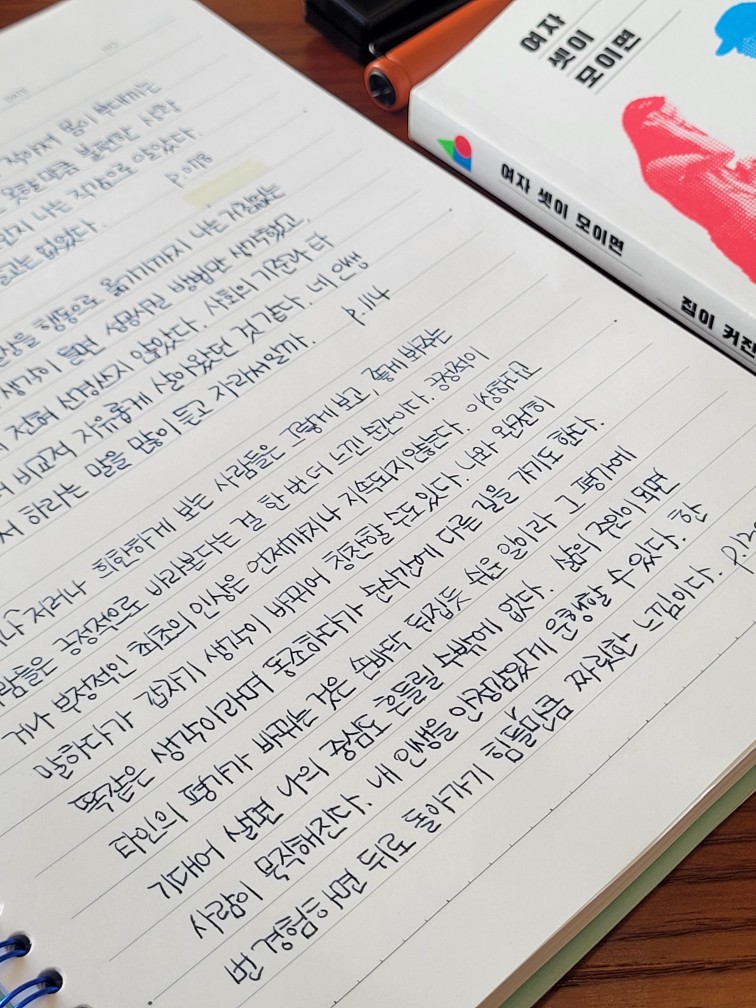 작아서 몸이 부대끼는
못할만큼 불편한 사람
인지 나는 직감으로 알았다.
없었다.
행동으로 옮기기까지 나는 거침없는
생각이 들면 성공시킬 방법만 생각했고,
전혀 신경쓰지 않았다. 사회의 기준과 다
비교적 자유롭게 살아왔던 것 같다. 네 인생
서 하라는 말을 많이 듣고 자라서일까. p.114
저러나 희한하게 보는 사람들은 그렇게 보고, 좋게 봐주는
람들은 긍정적으로 바라본다는 걸 한 번 더 느낀 순간이다. 긍정적이
거나 부정적인 최초의 인상은 언제까지나 지속되지 않는다. 이상하다고
말하다가 갑자기 생각이 바뀌어 칭찬할 수도 있다. 나와 완전히
똑같은 생각이라며 동조하다가 순식간에 다른 길을 가기도 한다.
타인의 평가가 바뀌는 것은 손바닥 뒤집듯 쉬운 일이라 그 평가에
기대어 살면 나의 중심도 흔들릴 수밖에 없다. 삶의 주인이 되면
사람이 묵직해진다. 내 인생을 안정감있게 운행할 수 있다. 한
번 경험하면 뒤로 돌아가기 힘들만큼 짜릿한 느낌이다.
여자
셋이
모이면
여자 셋이 모이면
집이 커진